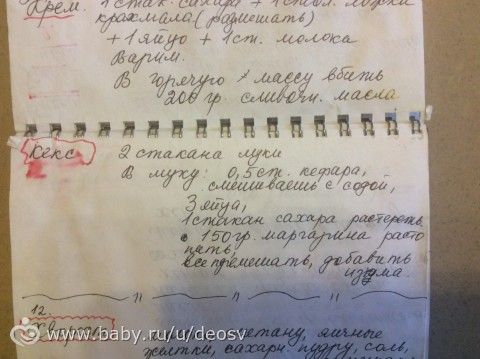 Крем. 1 стак. сахара + 1 стол. ложка
крахмала (размешать)
+ 1 яйцо + 1 ст. молока
Варим.
В горячую массу вбить
200 гр. сливочн. масла
Кекс
2 стакана муки
В муку: 0,5 ст. кефира,
смешиваешь с содой,
3 яйца,
1 стакан сахара растереть
150 гр. маргарина расто
пить,
все премешать, добавить
изюма.
12.
сметану, яичные
желтки, сахарн. пудру, соль,
www.baby.ru/u/deosv